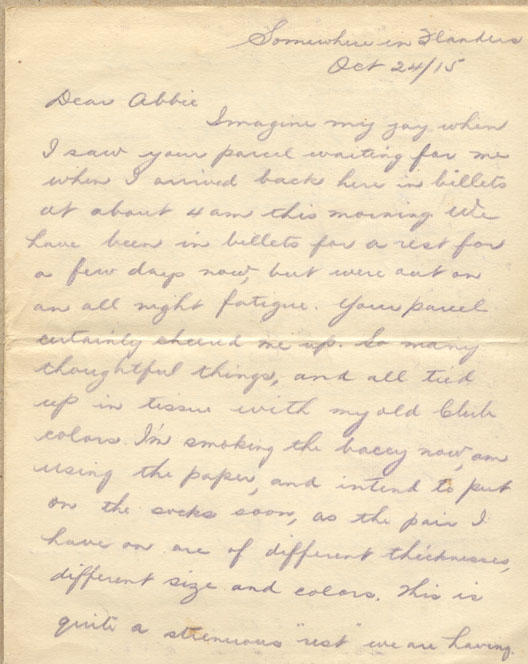 Somewhere in Flanders
Oct 24/15
Dear Abbie
Imagine my joy when
I saw your parcel waiting for me
when I arrived back here in billets
at about 4 am this morning. We
have been in billets for a rest for
a few days now, but were out on
an all night fatigue. Your parcel
certainly cheered me up. So many
thoughtful things, and all tied
up in tissue with my old Club
colors. I'm smoking the baccy now, am
using the paper, and intend to put
on the socks soon, as the pair I
have on are of different thicknesses,
different size and colors. This is
quite a strenuous "rest" we are having.